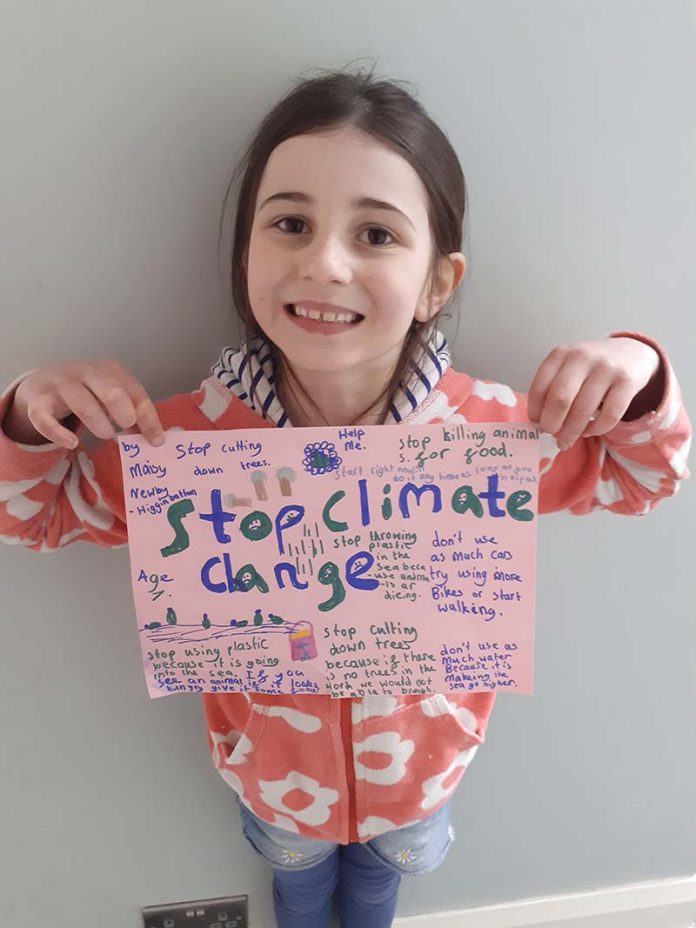 by
Maisy
Newby
- Higginbottom
Age
7.
Stop cutting
down trees.
Help
Me.
stop killing animal
s. for food.
start right now!!!
Stop climate
change
stop throwing
plastic
in the
sea beca
-use anima
-ls ar
dieing.
don't use
as much cars
try using more
Bikes or start
walking.
stop using plastic
because it is going
into the sea. If you
sea an animal if it looks
hungry give it some food
stop cutting
down trees
because if there
is no trees in the
we would not
be able to breath.
don't use as
much water
Because it is
making the
sea go higher.